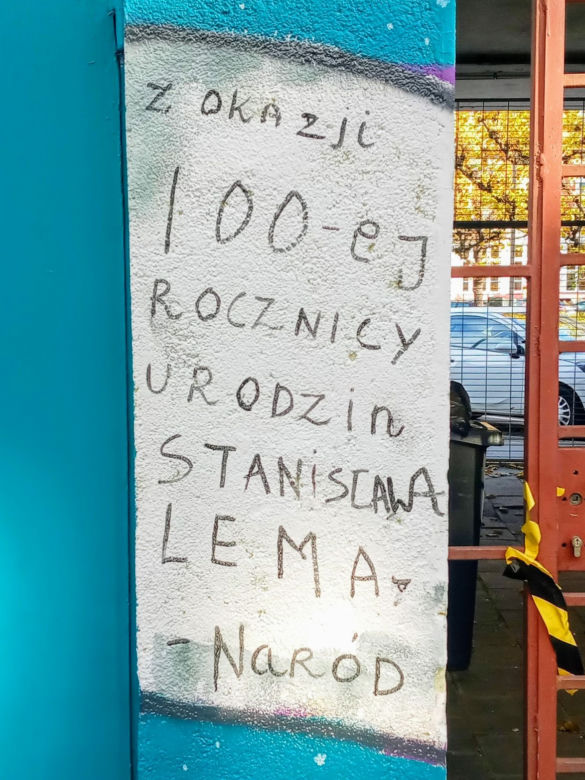 Z OKAZJI
100-ej
ROCZNICY
URODZin
STANISŁAWA
LEMA.
- NARÓD